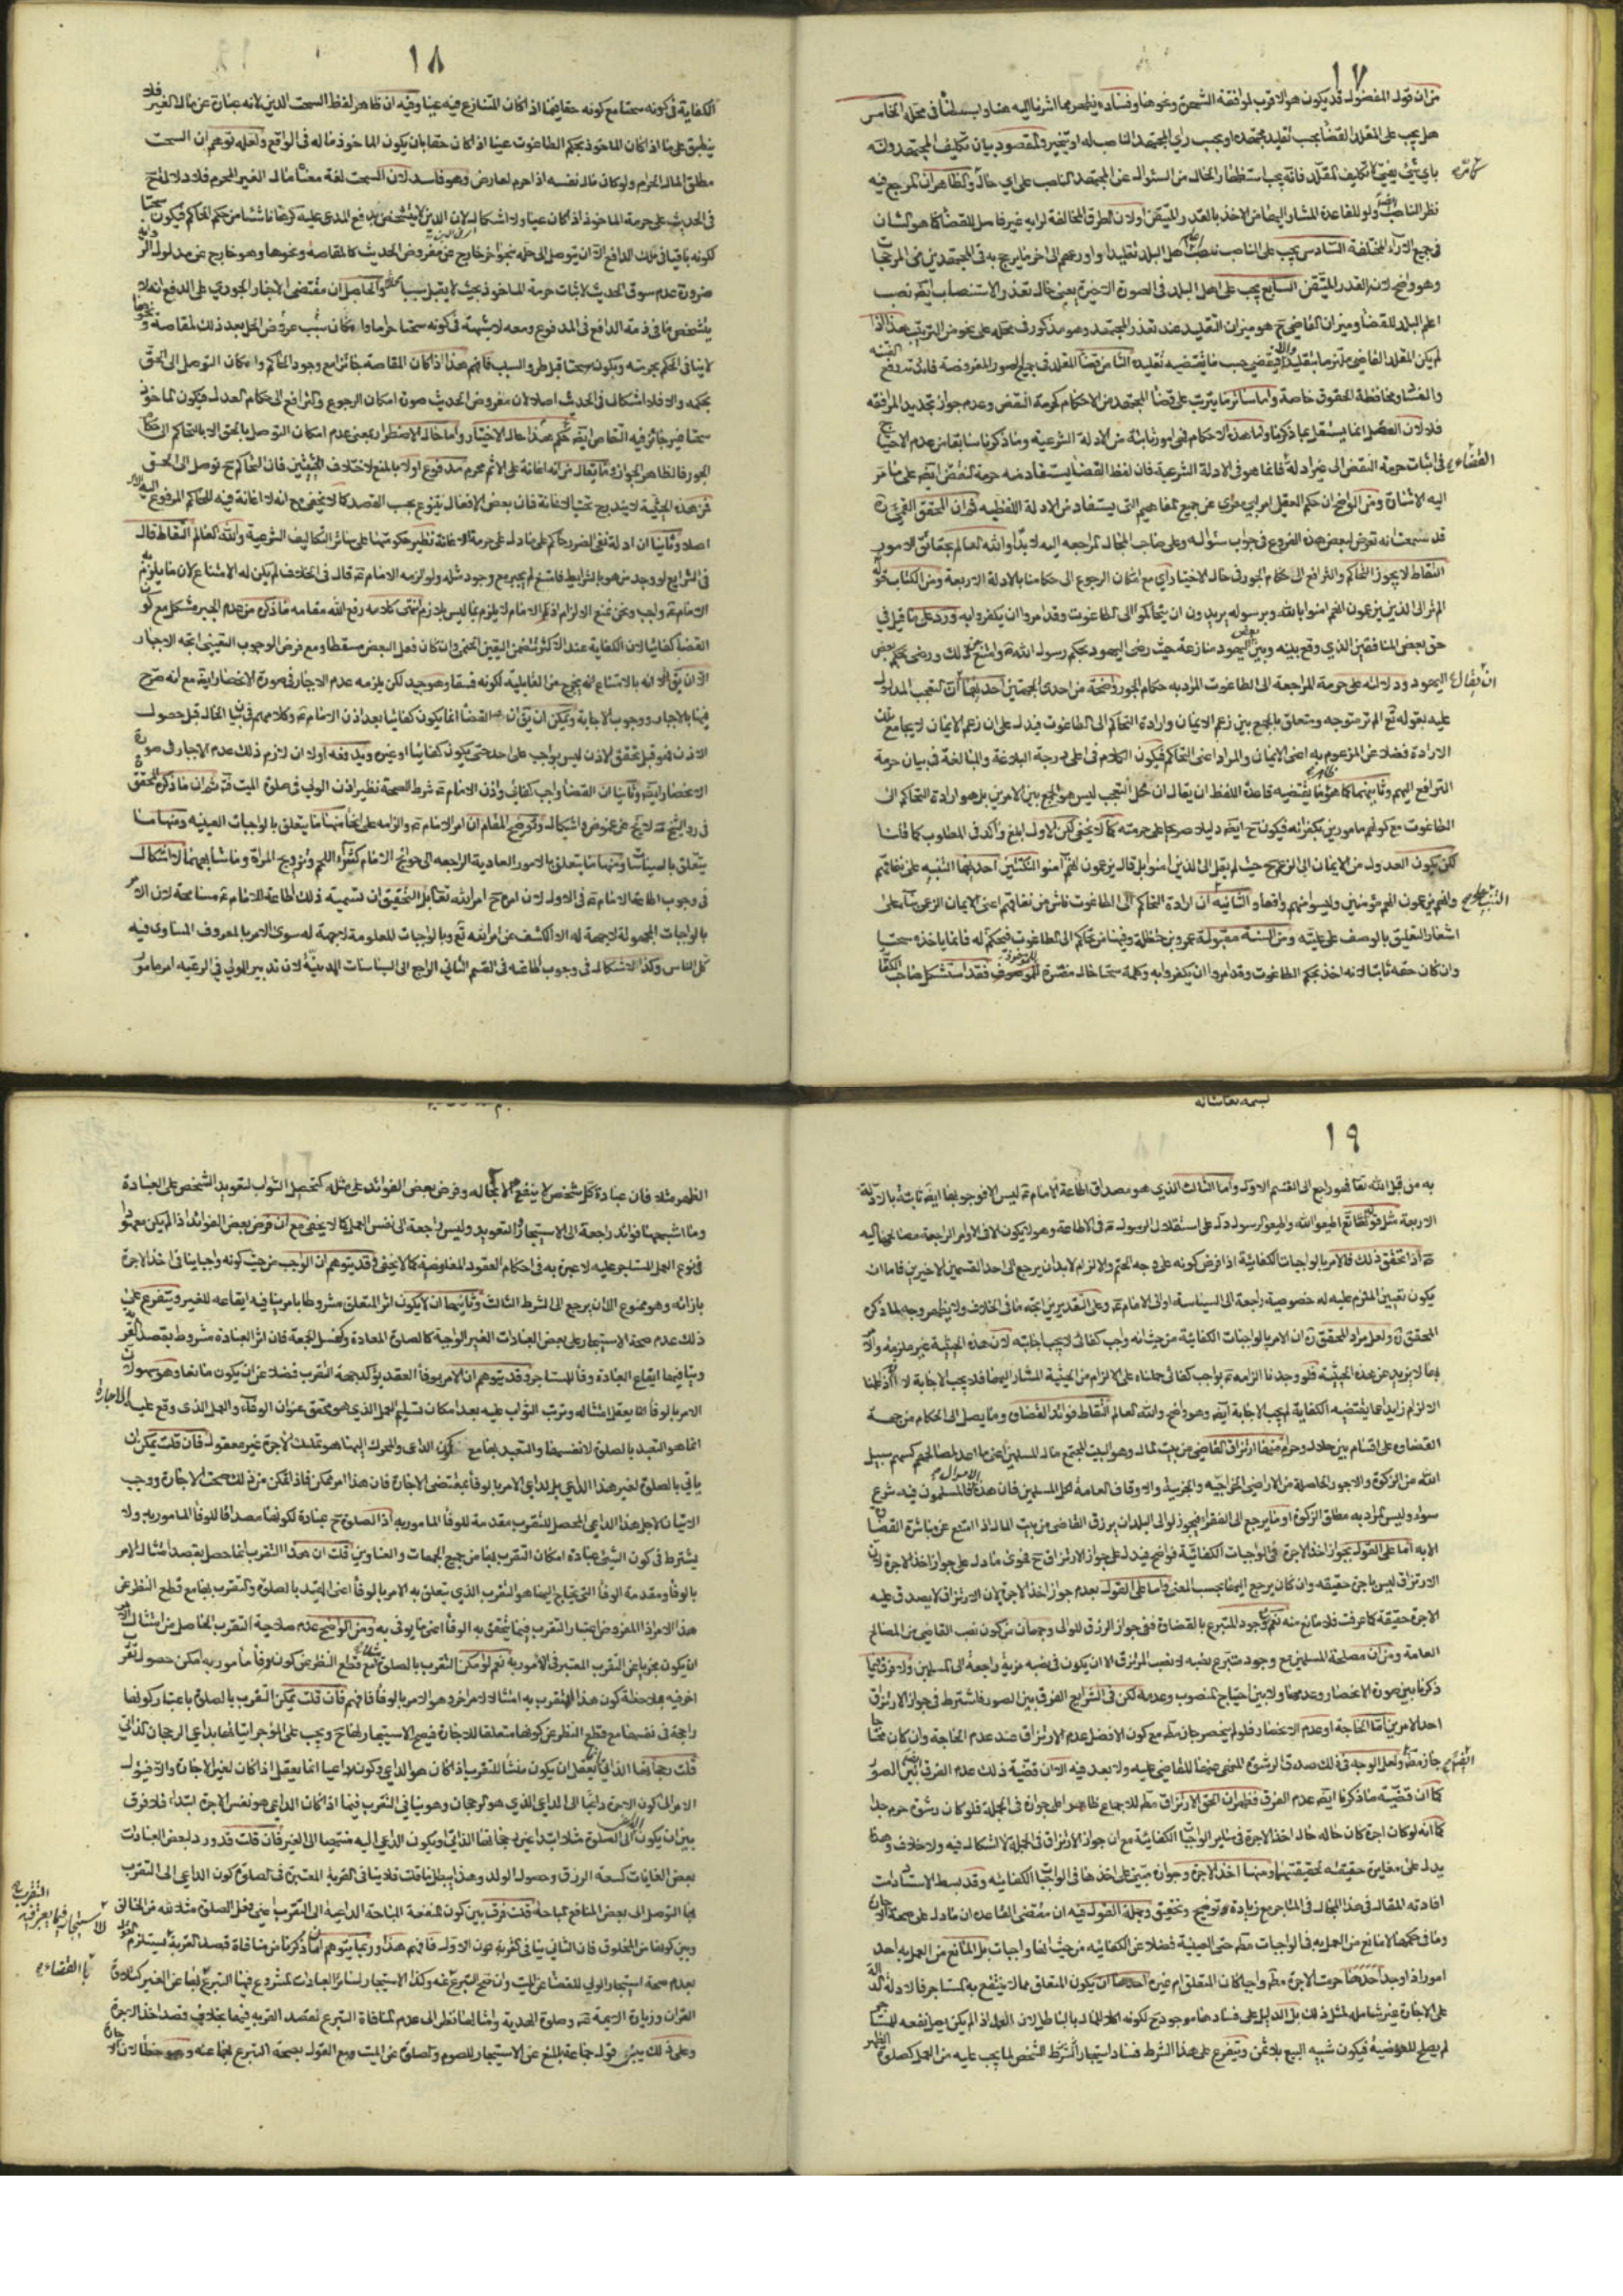 ١٧
من ان قول المفضول قد يكون هو الاقرب لموافقة الشهرة ونحوها وفساده يظهر مما اشرنا اليه هنا وبسطنا في محله الخامس
هل يجب على المقلد القضا بحسب تقليد مجتهده او بحسب راي المجتهد الناصب له او يتخير والمقصود بيان تكليف المجتهد وانه
باي شيء يفتي لا تكليف المقلد فانه يجب استظهار الحال من السؤال عن المجتهد الناصب على اي حال والظاهر ان المرجع فيه
نظر الناصب ولو للقاعدة المشار اليها من الاخذ بالقدر المتيقن اولان الطرق المخالفة لرايه غير فاصل للقضا كما هو الشان
في جميع الاراء المختلفة السادس يجب على الناصب نصب اعلم اهل البلد تقليدا او اورعهم الى اخر ما يرجح به في المجتهدين من المرجحات
وهو واضح لانه القدر المتيقن السابع يجب على اهل البلد في الصورة الاخيرة يعني حال تعذر الاستنصاب ايضا نصب
اعلم البلد للقضا وميزان القاضي ح هو ميزان التقليد عند تعذر المجتهد وهو مذكور في محله على نحو من الترتيب هذا اذا
لم يكن المقلد القاضي ملتزما بتقليد والا فيقضي حسب ما يقتضيه تقليده الثامن قضا المقلد في جميع الصور المفروضة فائدته رفع الفتنة
والفساد ومحافظة الحقوق خاصة واما سائر ما يترتب على قضا المجتهد من الاحكام كحرمة النقض وعدم جواز تجديد المرافعة
فلا لان العقل انما يستقل بما ذكرنا واما هذه الاحكام فهي امور ثابتة من الادلة الشرعية وما ذكرنا سابقا من عدم الاحتياج
في اثبات حرمة النقض الى غير ادلة القضاء فانما هو في الادلة الشرعية فان لفظ القضا يستفاد منه حرمة النقض ايضا على ما مر
اليه الاشارة ومن الواضح ان حكم العقل امر لبي معرى عن جميع المفاهيم التي يستفاد من الادلة اللفظية ثم ان المحقق القمي ره
قد سمعت انه تعرض لبعض هذه الفروع في جواب سؤاله وعلى صاحب المجال المراجعه اليه لابدا والله العالم بحقائق الامور
التقاط لا يجوز التحاكم والترافع الى حكام الجور في حال الاختيار اي مع امكان الرجوع الى حكامنا بالادلة الاربعة ومن الكتاب قوله
الم تر الى الذين يزعمون انهم امنوا بالله وبرسوله يريدون ان يتحاكموا الى الطاغوت وقد امروا ان يكفروا به ورد على ما قيل في
حق بعض المنافقين الذي وقع بينه وبين بعض اليهود منازعة حيث رضي اليهود بحكم رسول الله ص وامتنع ذلك ورضي بحكم بعض
اليهود ودلالته على حرمة المراجعة الى الطاغوت المراد به حكام الجور واضحة من احدى الجهتين احديهما ان يقال ان التعجب المدلول
عليه بقوله تع الم تر متوجه ويتعلق بالجمع بين زعم الايمان وارادة التحاكم الى الطاغوت فيدل على ان زعم الايمان لا يجامع تلك
الارادة فضلا عن المزعوم به اعني الايمان والمراد اعني التحاكم فيكون الكلام في اعلى درجة البلاغة والمبالغة في بيان حرمة
الترافع اليهم وثانيتهما كما هو ظاهر ما يقتضيه قاعدة اللفظ ان يقال ان محل التعجب ليس هو الجمع بين الامرين بل هو ارادة التحاكم الى
الطاغوت مع كونهم مامورين بكفرانه فيكون ح ايضا دليلا صريحا على حرمته كما لا يخفى لكن الاول ابلغ واكد في المطلوب كما قلنا
لكن يكون العدول من الايمان الى الزعم ح حيث لم يقل الى الذين امنوا بل قال يزعمون انهم امنوا لنكتتين احديهما التنبيه على نفاقهم
وانهم يزعمون انهم مؤمنين وليسوا منهم واقعا والثانية التنبيه على ان ارادة التحاكم الى الطاغوت ناش من نفاقهم اعني الايمان الزعمي بناء على
اشعار التعليق بالوصف على عليته ومن السنة مقبولة عمرو بن حنظلة وفيها من تحاكم الى الطاغوت فيحكم له فانما ياخذه سحتا
وان كان حقه ثابتا لانه اخذ بحكم الطاغوت وقد امروا ان يكفروا به وكلمة سحتا حال مفسرة للموصوف فقد استشكل صاحب
١٨
الكفاية في كونه سحتا مع كونه حقا ايضا اذا كان المتنازع فيه عينا وفيه ان ظاهر لفظ السحت الدين لانه عبارة عن مال الغير فلا
ينطبق على ما اذا كان الماخوذ بحكم الطاغوت عينا اذا كان حقا بان يكون الماخوذ ماله في الواقع ولعله توهم ان السحت
مطلق المال الحرام ولو كان مال نفسه اذا حرم لعارض وهو فاسد لان السحت لغة معناه مال الغير المحرم فلا دلالة ح
في الحديث على حرمة الماخوذ اذا كان عينا ولا اشكال لان الدين لا يتشخص بدفع المدعى عليه كرها ناشئا من حكم الحاكم فيكون سحتا
لكونه باقيا في ملك الدافع الا ان يتوصل الى حله بنحو اخر خارج عن مفروض الحديث كالمقاصة ونحوها وهو خارج عن مدلول الرواية
ضرورة عدم سوق الحديث لاثبات حرمة الماخوذ بحيث لا يقبل سببا محللا والحاصل ان مقتضى الاجبار الجوري على الدفع انه لا
يتشخص ما في ذمة الدافع في المدفوع ومعه لا شبهة في كونه سحتا حراما وامكان سبب عروض الحل بعد ذلك لمقاصة ونحوها
لا ينافي الحكم بحرمته وبكونه سحتا قبل طرو السبب فافهم هذا اذا كان المقاصة جائزا مع وجود الحاكم وامكان التوصل الى الحق
بحكمه والا فلا اشكال في الحديث اصلا لان مفروض الحديث صورة امكان الرجوع والترافع الى حكام العدل فيكون الماخوذ
سحتا غير جائز فيه التقاص ايضا ثم هذا حال الاختيار واما حال الاضطرار بمعنى عدم امكان التوصل بالحق الا بالتحاكم الى حكام
الجور فالظاهر الجواز وما يقال من انه اعانة على الاثم محرم مدفوع اولا بالمنع لاختلاف الحيثيتين فان التحاكم ح توصل الى الحق
فمن هذه الحيثية لا يندرج تحت الاعانة فان بعض الافعال يتنوع بحسب القصد كما لا يخفى مع انه لا اعانة فيه للحاكم المرفوع اليه الامر
اصلا وثانيا ان ادلة نفي الضرر حاكم على ما دل على حرمة الاعانة نظير حكومتها على سائر التكاليف الشرعية والله العالم التقاط قال
في الشرايع لو وجد من هو بالشرايط فامتنع لم يجبر مع وجود مثله ولو الزمه الامام ع قال في الخلاف لم يكن له الامتناع لان ما يلزم به
الامام ع واجب ونحن نمنع الالزام اذ الامام لا يلزم بما ليس بلازم انتهى كلامه رفع الله مقامه ما ذكره من عدم الجبر مشكل مع كون
القضا كفائيا لان الكفاية عند الاكثر متضمن اليقين الحتمي وان كان فعل البعض مسقطا ومع فرض الوجوب التعيني اتجه الاجبار
الا ان يق انه بالامتناع انه يخرج من القابلية لكونه فسقا وهو جيد لكن يلزمه عدم الاجبار في صورة الانحصار ايضا مع انه صرح
فيها بالاجبار ووجوب الاجابة ويمكن ان يق ان القضا انما يكون كفائيا بعد اذن الامام ع وكلامهم في بيان الحال قبل حصول
الاذن فهو قبل تحقق الاذن ليس بواجب على احد حتى يكون كفائيا او غيره ويدفعه اولا ان لازم ذلك عدم الاجبار في صورة
الانحصار ايضا وثانيا ان القضا واجب كفائي واذن الامام ع شرط الصحة نظير اذن الولي في صلوة الميت ثم ان ما ذكره المحقق
في رد الشيخ لا يخ عن غموض واشكال وتوضيح المقام ان امر الامام ع والزامه على انحاء منها ما يتعلق بالواجبات العينية ومنها ما
يتعلق بالسياسات ومنها ما يتعلق بالامور العادية الراجعه الى حوائج الامام كشراء اللحم وتزويج المراة وما شابههما لا اشكال
في وجوب اطاعة الامام ع في الاول لان امره ح امر الله تعا بل التحقيق ان تسمية ذلك اطاعة للامام ع مسامحة لان الامر
بالواجبات المجعولة لا جهة له الا الكشف عن امر الله تع وبالواجبات المعلومة لا جهة له سوى الامر بالمعروف المساوى فيه
كل الناس وكذا لا اشكال في وجوب اطاعته في القسم الثاني الراجع الى السياسات المدنية لان تدبير المولي في الرعيه امر مامور
١٩
به من قبل الله تعا فهو راجع الى القسم الاول واما الثالث الذي هو مصداق اطاعة الامام ع ليس الا فوجوبها ايضا ثابتة بالادلة
الاربعة مثل قوله تعا اطيعوا الله واطيعوا الرسول دل على استقلال الرسول ص في الاطاعة وهو لا يكون الا في الاوامر الراجعة مصالحها اليه
ع اذا تحقق ذلك فالامر بالواجبات الكفائية اذا فرض كونه على وجه الحتم والالزام لابد ان يرجع الى احد القسمين الاخيرين فاما ان
يكون تعيين الملتزم عليه له خصوصية راجعة الى السياسة او الى الامام ع وعلى التقديرين اتجه ما في الخلاف ولا يظهر وجه لما ذكره
المحقق ره ولعل مراد المحقق ره ان الامر بالواجبات الكفائية من حيث انه واجب كفائى لا يجب اجابته لان هذه الحيثية غير ملزمة والامر
بها لا يزيد عن هذه الحيثية فلو وجدنا الزامه ع بواجب كفائى حملناه على الالزام من الحيثية المشار اليها فلا يجب الاجابة لا
الالزام زايدا عما يقتضيه الكفاية لم يجب الاجابة ايضا وهو واضح والله العالم التقاط فوائد القضاء وما يصل الى الحكام من جهة
القضاء على اقسام بين حلال وحرام منها ارتزاق القاضي من بيت المال وهو البيت المجتمع مال المسلمين اعني ما اعد لمصالحهم كسهم سبيل
الله من الزكوة والاجور الحاصلة من الاراضي الخراجيه والجزية والاوقاف العامة لكل المسلمين فان هذه الاموال المسلمون فيه شرع
سواء وليس المراد به مطلق الزكوة او ما يرجع الى الفقراء فيجوز لوالي البلدان يرزق القاضي من بيت المال اذا امتنع عن مباشرة القضاء
الا به اما على القول بجواز اخذ الاجرة في الواجبات الكفائية فواضح فيدل على جواز الارتزاق ح فحوى ما دل على جواز اخذ الاجرة لان
الارتزاق ليس باجرة حقيقه وان كان يرجع اليها بحسب المعنى واما على القول بعدم جواز اخذ الاجرة لان الارتزاق لا يصدق عليه
الاجرة حقيقة كما عرفت فلا مانع منه نعم مع وجود المتبرع بالقضاء ففي جواز الرزق للوالي وجهان من كون نصب القاضي من المصالح
العامة ومن ان مصلحة المسلمين مع وجود متبرع نصبه لا نصب المرتزق الا ان يكون في نصبه مزية راجعة الى المسلمين ولا فرق فيما
ذكرنا بين صورة الانحصار وعدمها ولا بين احتياج المنصوب وعدمه لكن في الشرايع الفرق بين الصور فاشترط في جواز الارتزاق
احد الامرين اما الحاجة او عدم الانحصار فلو لم ينحصر جاز مطم مع كون الافضل عدم الارتزاق عند عدم الحاجة وان كان محتاجا
جاز مطم ولعل الوجه في ذلك صدق الرشوة المنهي عنها للقاضي عليه ولا بعد فيه الا ان قضية ذلك عدم الفرق بين الصور
كما ان قضية ما ذكرنا ايضا عدم الفرق فظهر ان الحق الارتزاق مطم للاجماع ظاهرا على جوازه في الجملة فلو كان رشوة حرم جدا
كما انه لو كان اجرة كان حاله حال اخذ الاجرة في ساير الواجبات الكفائية مع ان جواز الارتزاق في الجملة لا اشكال فيه ولا خلاف وهذا
يدل على مغايرة حقيقته لحقيقتهما ومنها اخذ الاجرة وجوازه مبتنى على اخذها في الواجبات الكفائيه وقد بسط الاستاد دامت
افاداته المقال في هذا المجال في المتاجر مع زيادة توضيح وتحقيق وجملة القول فيه ان مقتضى القاعدة ان ما دل على صحة الاجارة
وما في حكمها لا مانع من العمل به في الواجبات مطم حتى العينية فضلا عن الكفائيه من حيث انها واجبات بل المانع من العمل به احد
امور اذا وجد احدها حرمت الاجرة مطم واجبا كان المتعلق ام غيره احدها ان يكون المتعلق مما لا ينتفع به المستاجر فالادلة الدالة
على الاجارة غير شاملة لمثل ذلك بل الدليل على فسادها موجود ح لكونه اكلا للمال بالباطل لان العمل اذا لم يكن يصل نفعه للمستاجر
لم يصلح للعوضية فيكون شبيه البيع بلا ثمن ويتفرع على هذا الشرط فساد استيجار الشخص لما يجب عليه من العمل كصلوة الظهر
الظهر مثلا فان عبادة كل شخص لا ينفع الا بحاله وفرض بعض الفوائد على مثله كتحصيل الثواب لتعويد الشخص على العبادة
وما اشبهها فوائد راجعة الى الاستيجار والتعويد وليس راجعة الى نفس العمل كما لا يخفى مع ان فرض بعض الفوائد اذا لم يكن معهودا
في نوع العمل المستاجر عليه لا عبرة به في احكام العقود المعاوضية كما لا يخفى وقد يتوهم ان الواجب من حيث كونه واجبا ينافي اخذ الاجرة
بازائه وهو ممنوع الا ان يرجع الى الشرط الثالث وثانيهما ان لا يكون اثر المتعلق مشروطا بامر ينافيه ايقاعه للغير ويتفرع على
ذلك عدم صحة الاستيجار على بعض العبادات الغير الواجبة كالصلوة المعادة وكغسل الجمعة فان اثر العبادة مشروط بقصد القربة
وينافيها ايقاع العبادة وفاء للمستاجر وقد يتوهم ان الامر بوفاء العقد يؤكد جهة التقرب فضلا عن ان يكون مانعا وهو سهو لان
الامر بالوفاء انما يعقل امتثاله وترتب الثواب عليه بعد امكان تسليم العمل الذي هو محقق عنوان الوفاء والعمل الذي وقع عليه الاجارة
انما هو التعبد بالصلوة لا نفسها والتعبد بها مع كون الداعي والمحرك اليها هو تملك الاجرة غير معقول فان قلت يمكن ان
ياتي بالصلوة لغير هذا الداعي بل لداعي الامر بالوفاء بمقتضى الاجارة فان هذا امر ممكن فاذا تمكن من ذلك صحت الاجارة ووجب
الاتيان لاجل هذا الداعي المحصل للتقرب مقدمة للوفاء المامور به اذ الصلوة ح عبادة لكونها مصداقا للوفاء المامور به ولا
يشترط في كون الشيء عبادة امكان التقرب بها من جميع الجهات والعناوين قلت ان هذا التقرب انما حصل بقصد امتثال الامر
بالوفاء ومقدمة الوفاء التي يحتاج اليها هو التقرب الذي يتعلق به الامر بالوفاء اعني التعبد بالصلوة والتقرب بها مع قطع النظر عن
هذا الامر اذ المفروض اعتبار التقرب فيما يتحقق به الوفاء اعني ما يوفى به ومن الواضح عدم صلاحية التقرب الحاصل من امتثال الامر
ان يكون مجزيا عن التقرب المعتبر في المامور به نعم لو امكن التقرب بالصلوة مثلا مع قطع النظر عن كون وفاء مامور به امكن حصول تقرب
اخر فيه بملاحظة كون هذا التقرب به امتثالا لامر اخر وهو الامر بالوفاء فافهم فان قلت يمكن التقرب بالصلوة باعتبار كونها
راجحة في نفسها مع قطع النظر عن كونها متعلقا للاجارة فيصح الاستيجار لها ح ويجب على المؤجر اتيانها بداعي الرجحان الذاتي
قلت رجحانها الذاتي انما يعقل ان يكون منشا للتقرب اذا كان هو الداعي وكونه داعيا انما يعقل اذا كان لغير الاجارة والا فيؤل
الامر الى كون الاجرة داعيا الى الداعي الذي هو الرجحان وهو ينافي التقرب فيما اذا كان الداعي هو نفس الاجرة ابتداء فلا فرق
بين ان يكون الداعي الى الصلوة مثلا ابتداء غير رجحانها الذاتي او يكون الداعي اليه منتهيا الى الغير فان قلت قد ورد لبعض العبادات
بعض الغايات كسعة الرزق وحصول الولد وهذا يبطل ما قلت فلا ينافي القربة المعتبرة في الصلوة كون الداعي الى التقرب
بها التوصل الى بعض المنافع المباحة قلت فرق بين كون المنفعة المباحة الداعية الى التقرب اعني فعل الصلوة مثلا لله من الخالق
وبين كونها من المخلوق فان الثاني ينافي القربة دون الاول فافهم هذا وربما يتوهم ان ما ذكرنا من منافاة قصد القربة يستلزم القول
بعدم صحة استيجار الولي للقضا عن الميت وان صح التبرع عنه وكذا الاستيجار لسائر العبادات المشروع فيها التبرع بها عن الغير كتلاوة
القران وزيارة الائمة ع وصلوة الهدية وامثالها نظرا الى عدم منافاة التبرع لقصد القربة فيها بخلاف قصد اخذ الاجرة
وعلى ذلك يبتنى قول جماعة بالمنع عن الاستيجار للصوم والصلوة عن الميت ومع القول بصحة التبرع بهما عنه